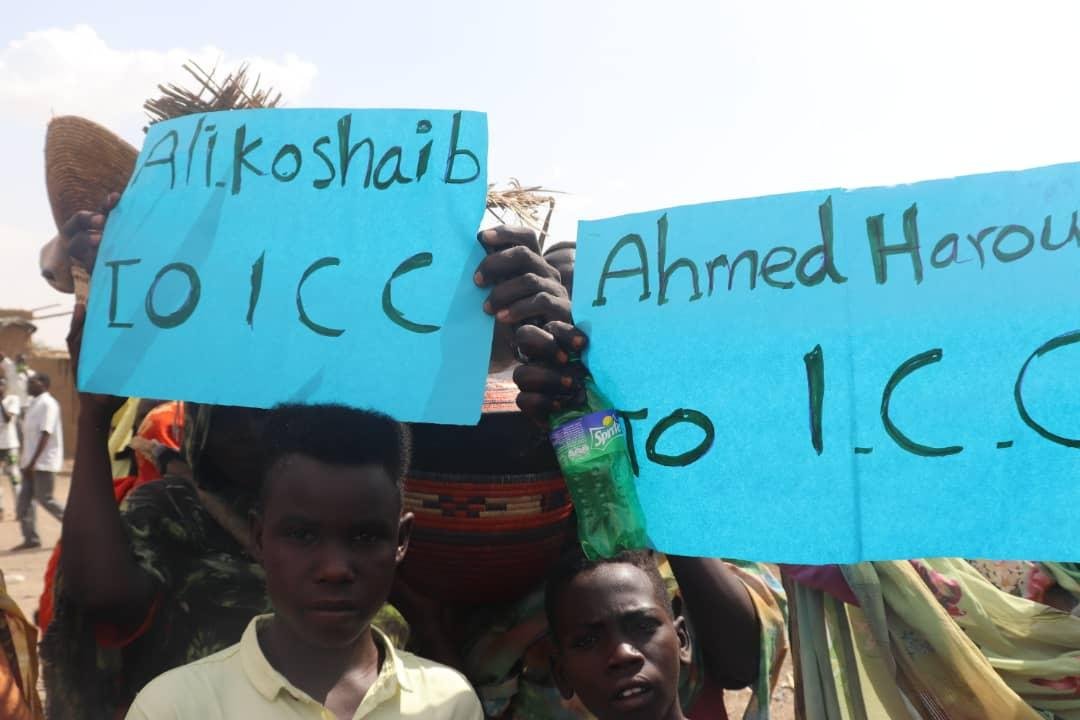 Ali.koshaib
TO ICC
Ahmed Harou
To I.C.C
Sprite